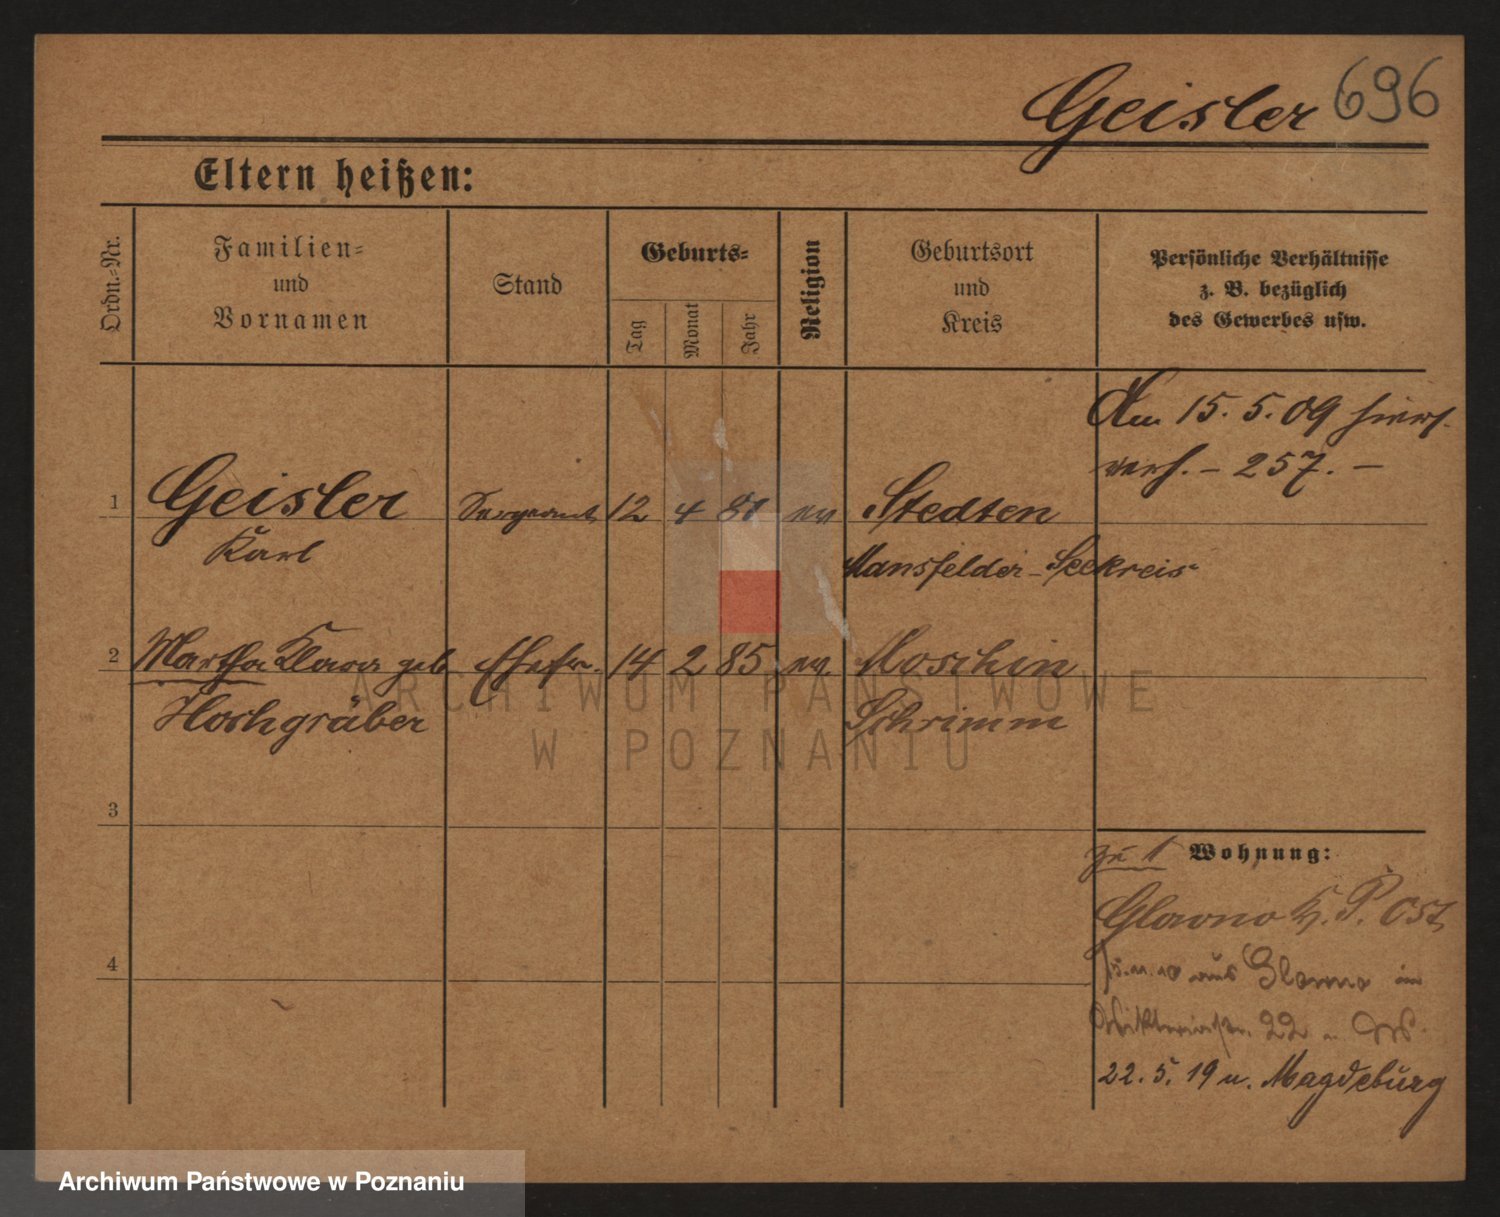 Geisler 696
Eltern heißen:
Ordn.-Nr.
Familien-
und
Vornamen
Stand
Geburts-
Tag
Monat
Jahr
Religion
Geburtsort
und
Kreis
Persönliche Verhältnisse
z. B. bezüglich
des Gewerbes usw.
Am 15. 5. 09 hiers.
verh. - 257. -
1 Geisler Sergeant 12 4 81 ev Stedten
Karl Mansfelder-Seekreis
2 Martha Klara geb Ehefr. 14 2 85 ev. Moschin
Hochgräber Schrimm
3
zu 1 Wohnung:
Glowno K. P. Ost
4
15.11.10 aus Glowno in
Viktoriastr. 22
22. 5. 19 n. Magdeburg
ARCHIWUM PAŃSTWOWE
W POZNANIU
Archiwum Państwowe w Poznaniu